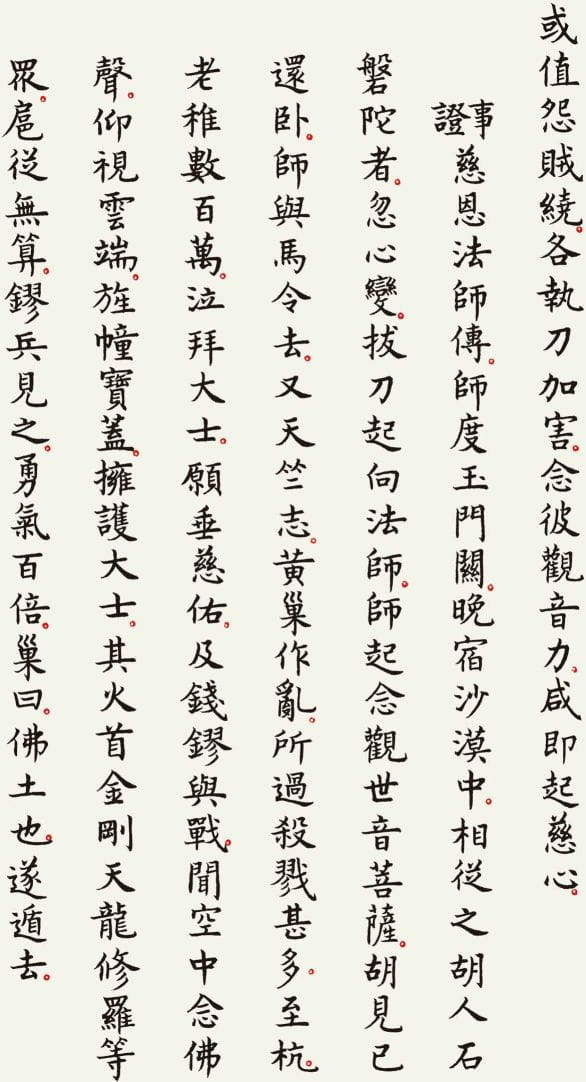 或值怨賊繞。各執刀加害。念彼觀音力。咸即起慈心。
事證 慈恩法師傳。師度玉門關。晚宿沙漠中。相從之胡人石
磐陀者。忽心變。拔刀起向法師。師起念觀世音菩薩。胡見已
還卧。師與馬令去。又天竺志。黃巢作亂。所過殺戮甚多。至杭。
老稚數百萬。泣拜大士。願垂慈佑。及錢鏐與戰。聞空中念佛
聲。仰視雲端。旌幢寶蓋。擁護大士。其火首金剛天龍修羅等
眾。扈從無算。鏐兵見之。勇氣百倍。巢曰。佛土也。遂遁去。